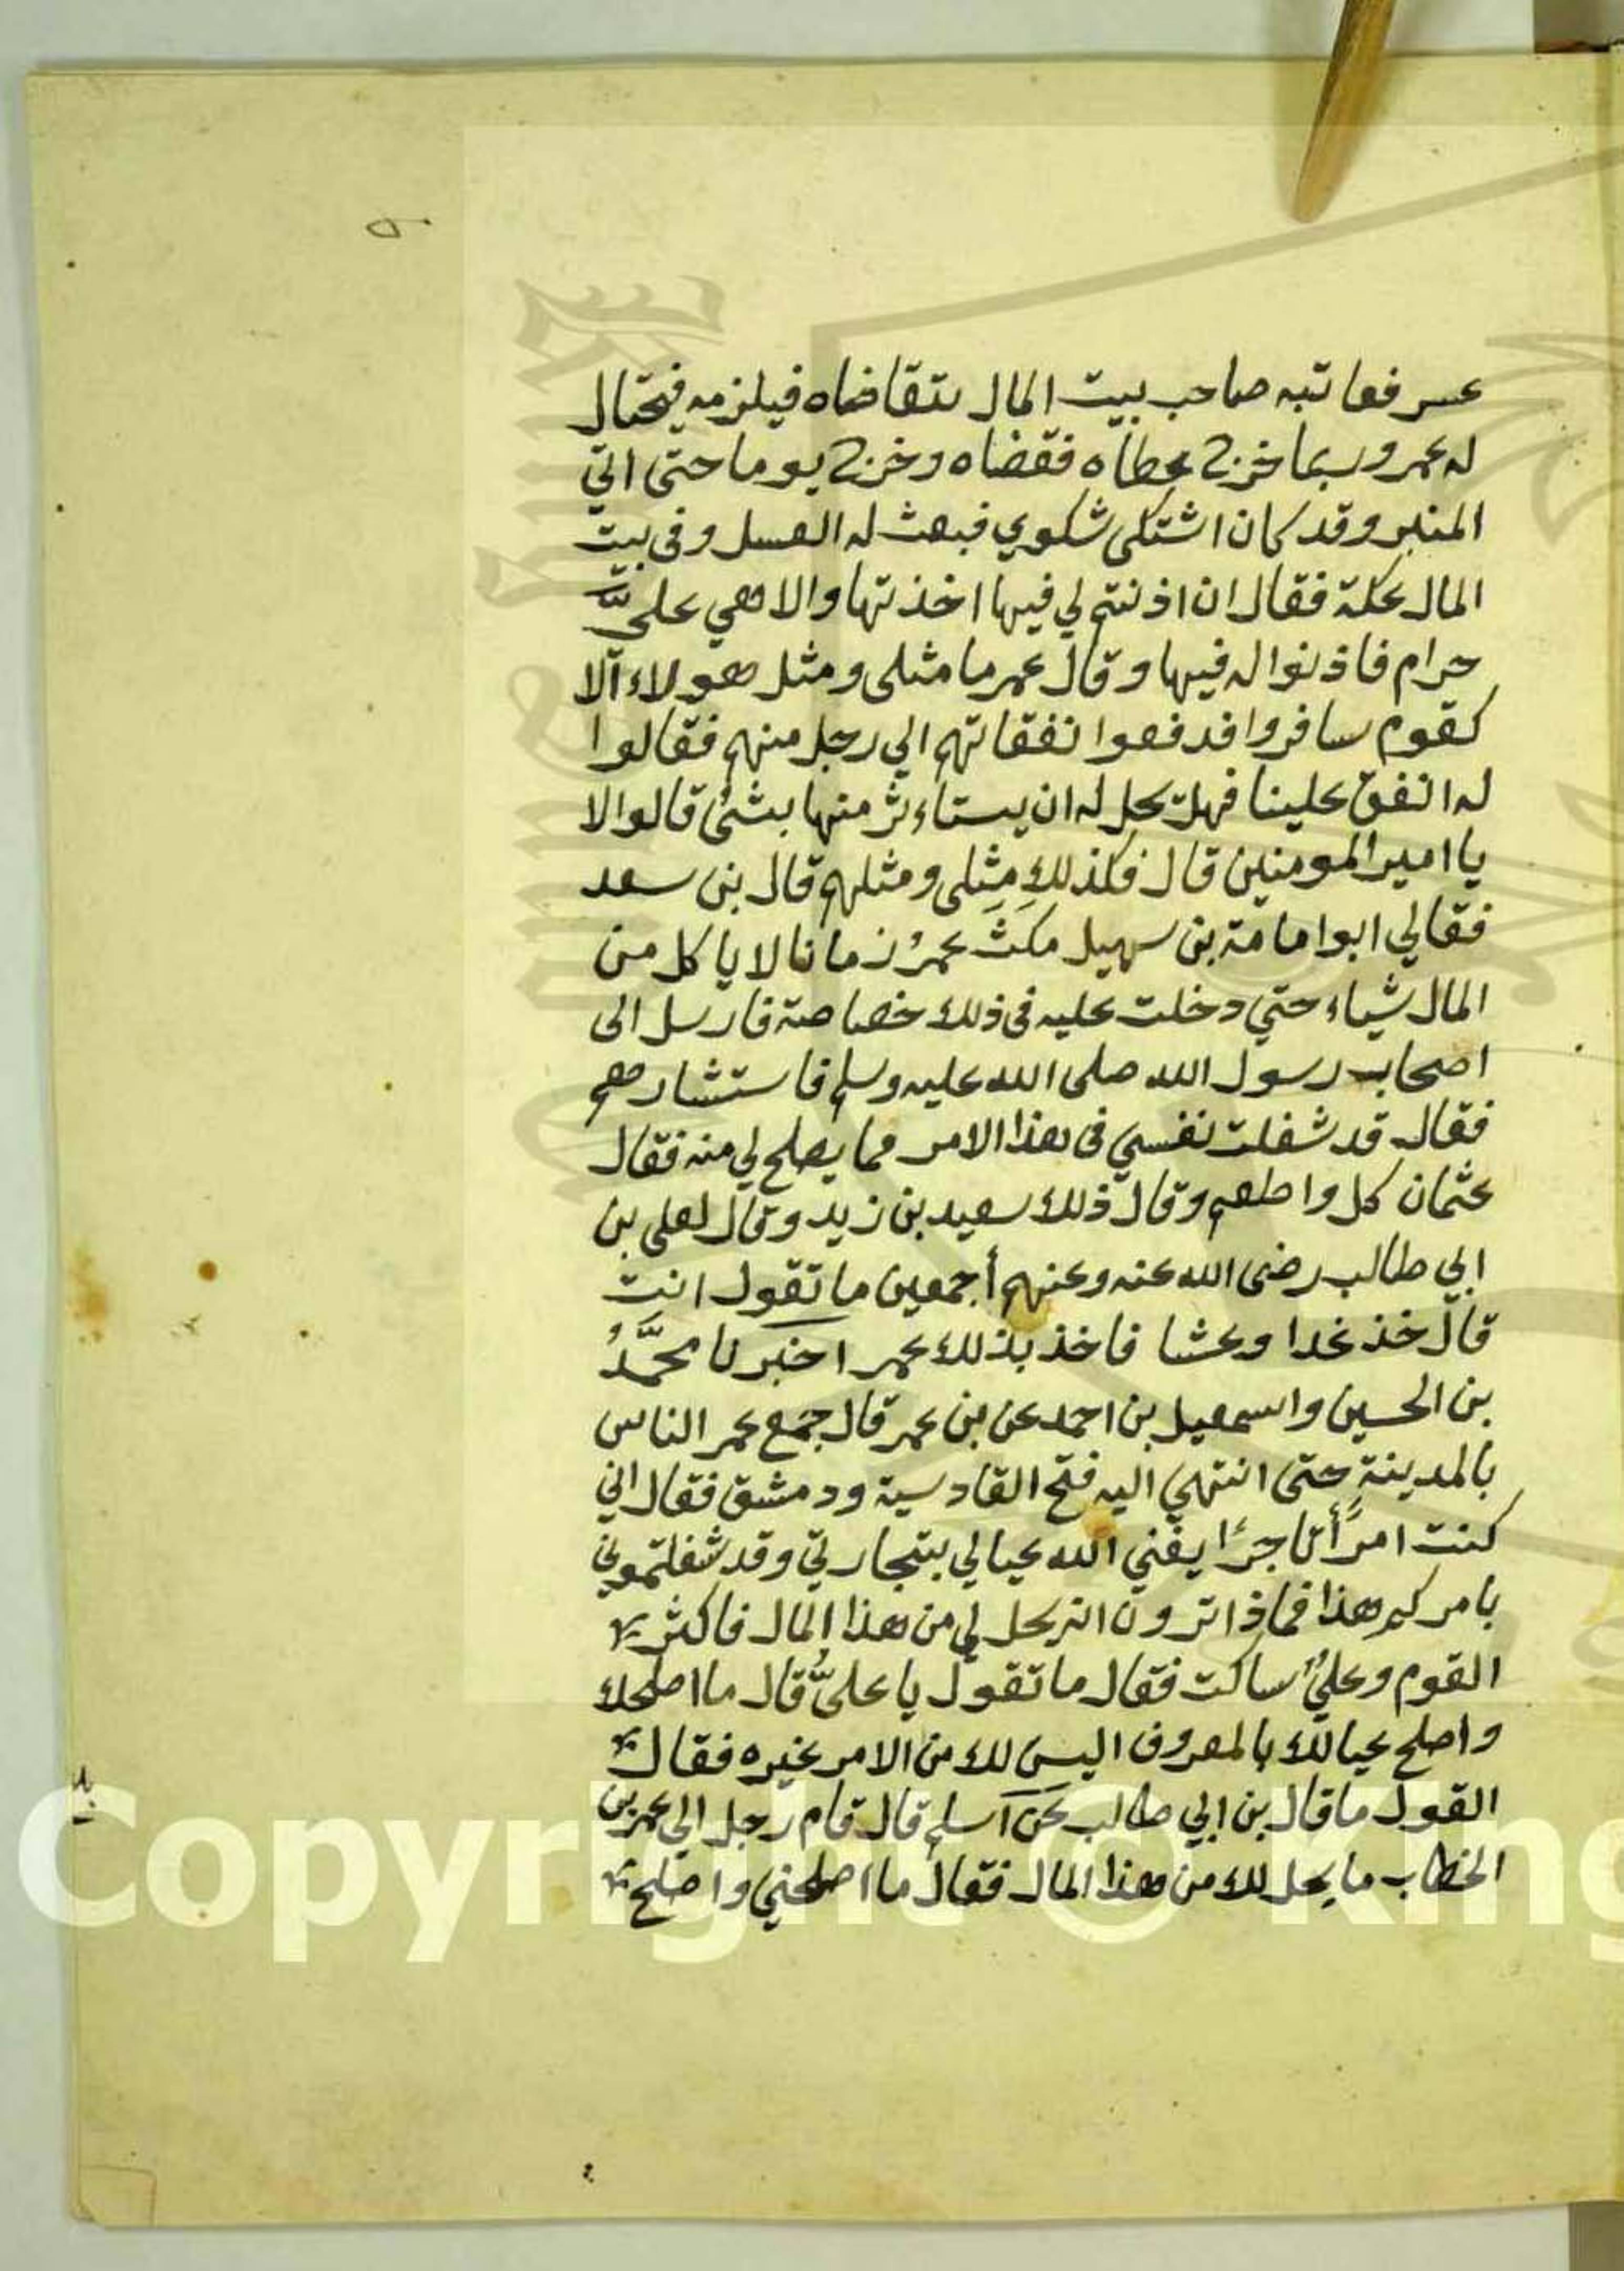 عسر فعاتبه صاحب بيت المال يتقاضاه فيلزمه فيحتال
له عمر وربما خرج عطاه فقضاه وخرج يوما حتى اتي
المنبر وقد كان اشتكى شكوي فبعث له العسل وفى بيت
المال عكة فقال ان اذنتم لي فيها اخذتها والا هي عليَّ
حرام فاذنوا له فيها وقال عمر ما مثلى ومثل هولاء الا
كقوم سافروا فدفعوا نفقاتهم الي رجل منهم فقالوا
له انفق علينا فهل يحل له ان يستاءثر منها بشئ قالوا لا
يا امير المومنين قال فكذلك مثلى ومثلهم قال بن سعد
فقالي ابوا مامة بن سهيل مكثَ عمرُ زمانا لا ياكل من
المال شياء حتي دخلت عليه فى ذلك خصاصة فارسل الى
اصحاب رسول الله صلى الله عليه وسلم فاستشارهم
فقال قد شغلت نفسي فى هذا الامر مما يصلح لي منه فقال
عثمان كل واطعم وقال ذلك سعيد بن زيد وقال لعلى بن
ابي طالب رضى الله عنه وعنهم أجمعين ما تقول انت
قال خذ غدا وعشا فاخذ بذلك عمر اخبرنا محمَّدُ
بن الحسين واسمعيل بن احمد عن بن عمر قال جمع عمر الناس
بالمدينة حتى انتهي اليه فتح القادسية ودمشق فقال اني
كنت امرًأ تاجرًا يغني الله عيالي بتجارتي وقد شغلتموني
بامركم هذا فماذا ترون انه يحل لي من هذا المال فاكثر
القوم وعليٌ ساكت فقال ما تقول يا علىُّ قال ما اصلحك
واصلح عيالك بالمعروف اليس لك من الامر غيره فقال
القول ما قال بن ابي طالب عن اسلم قال قام رجل الي عمر بن
الخطاب ما يحل لك من هذا المال فقال ما اصلحني واصلح
Copyright © King